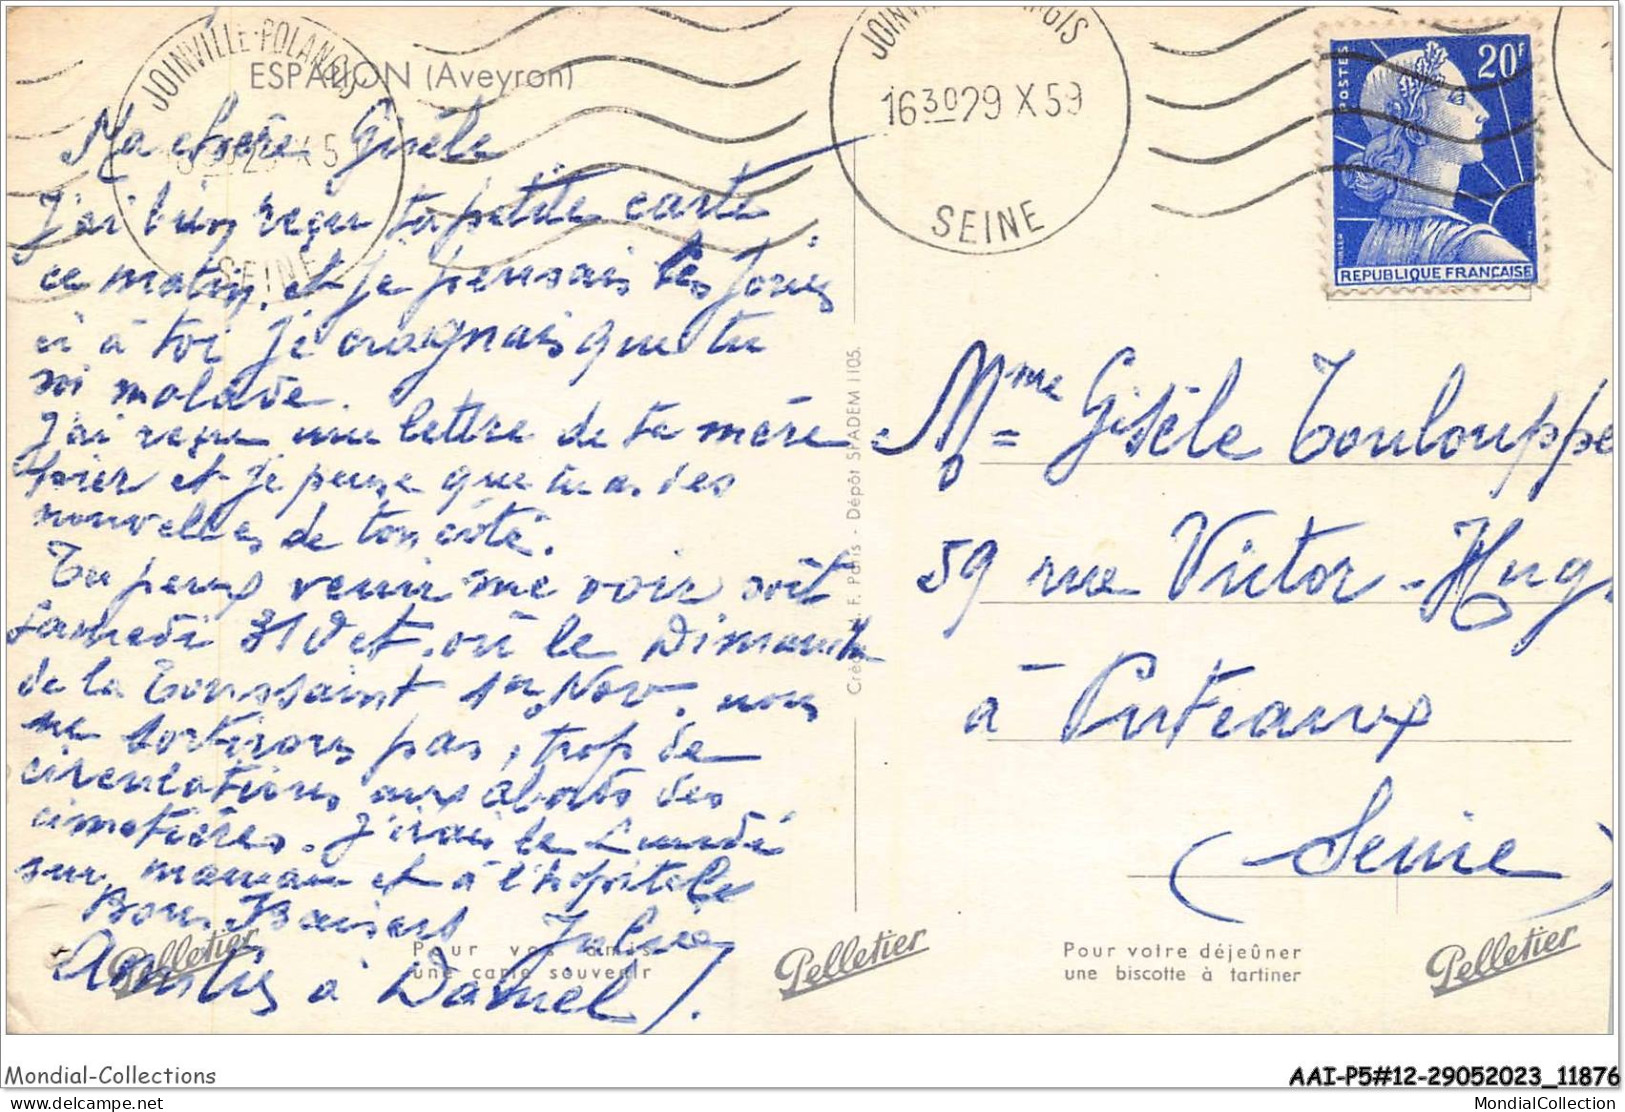 ESPALION (Aveyron)
JOINVILLE-POLANGIS
SEINE
Ma chère Gisèle
J'ai bien reçu ta petite carte
ce matin, et je pensais ces jours
ci à toi je craignais que tu
soi malade.
J'ai reçu une lettre de ta mère
hier et je pense que tu as des
nouvelles de ton côté.
Tu peux venir me voir soit
Samedi 31 Oct. où le Dimanche
de la Toussaint 1er Nov. nous
ne sortirons pas, trop de
circulations aux abords des
cimetières. J'irai le Lundi
sur maman et à l'hôpital
Bons Baisers
Amitiés à Daniel.
Pelletier
Pour vos amis
une carte souvenir
Créa F. Paris - Dépôt STADEM 1105.
16 30 29 X 59
SEINE
POSTES
20F
REPUBLIQUE FRANÇAISE
Mme Gisèle Toulouppe
59 rue Victor-Hugo
à Puteaux
(Seine)
Pelletier
Pour votre déjeûner
une biscotte à tartiner
Pelletier
Mondial-Collections
delcampe.net
AAI-P5#12-29052023_11876
MondialCollection